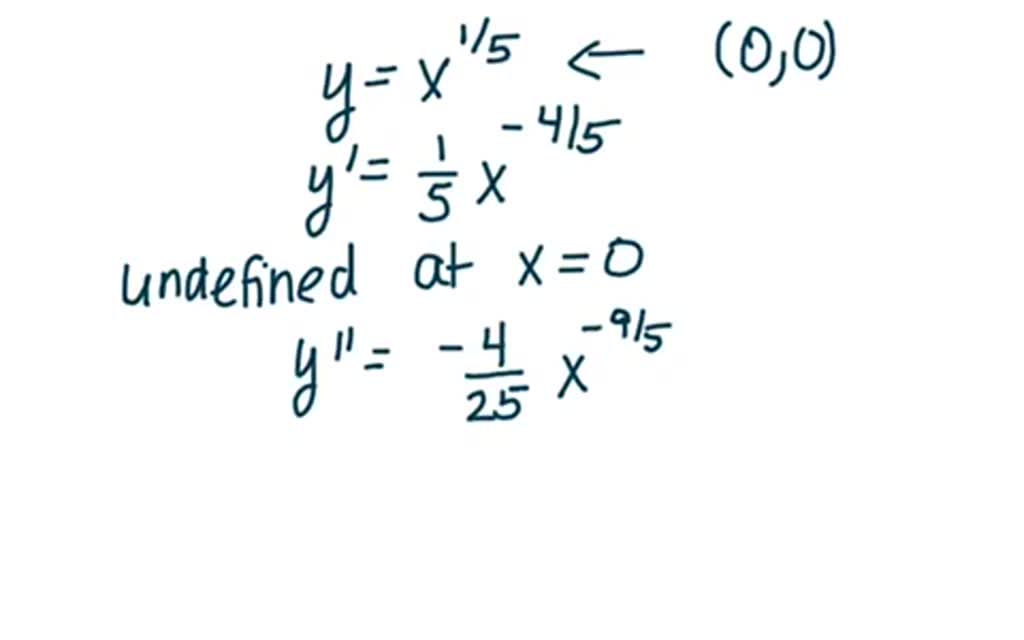 y = x^{1/5} ← (0,0)
y' = \frac{1}{5} x^{-4/5}
undefined at x = 0
y'' = \frac{-4}{25} x^{-9/5}